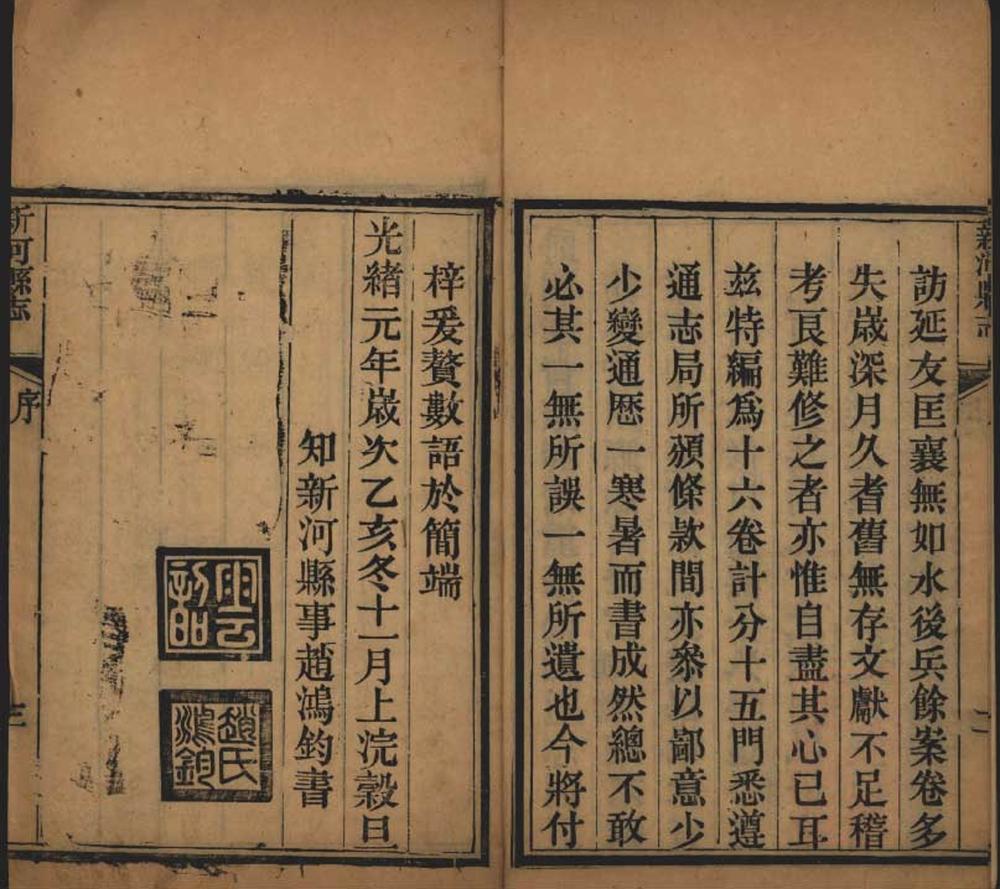 新河縣志
二
訪延友匡襄無如水後兵餘案卷多
失嵗深月久耆舊無存文獻不足稽
考艮難修之者亦惟自盡其心已耳
兹特編爲十六卷計分十五門悉遵
通志局所頒條欵間亦叅以鄙意少
少變通歴一寒暑而書成然總不敢
必其一無所誤一無所遺也今將付
梓爰贅數語於簡端
光緒元年嵗次乙亥冬十一月上浣榖旦
知新河縣事趙鴻鈞書
雲詔
趙氏鴻鈞
新河縣志
序
三